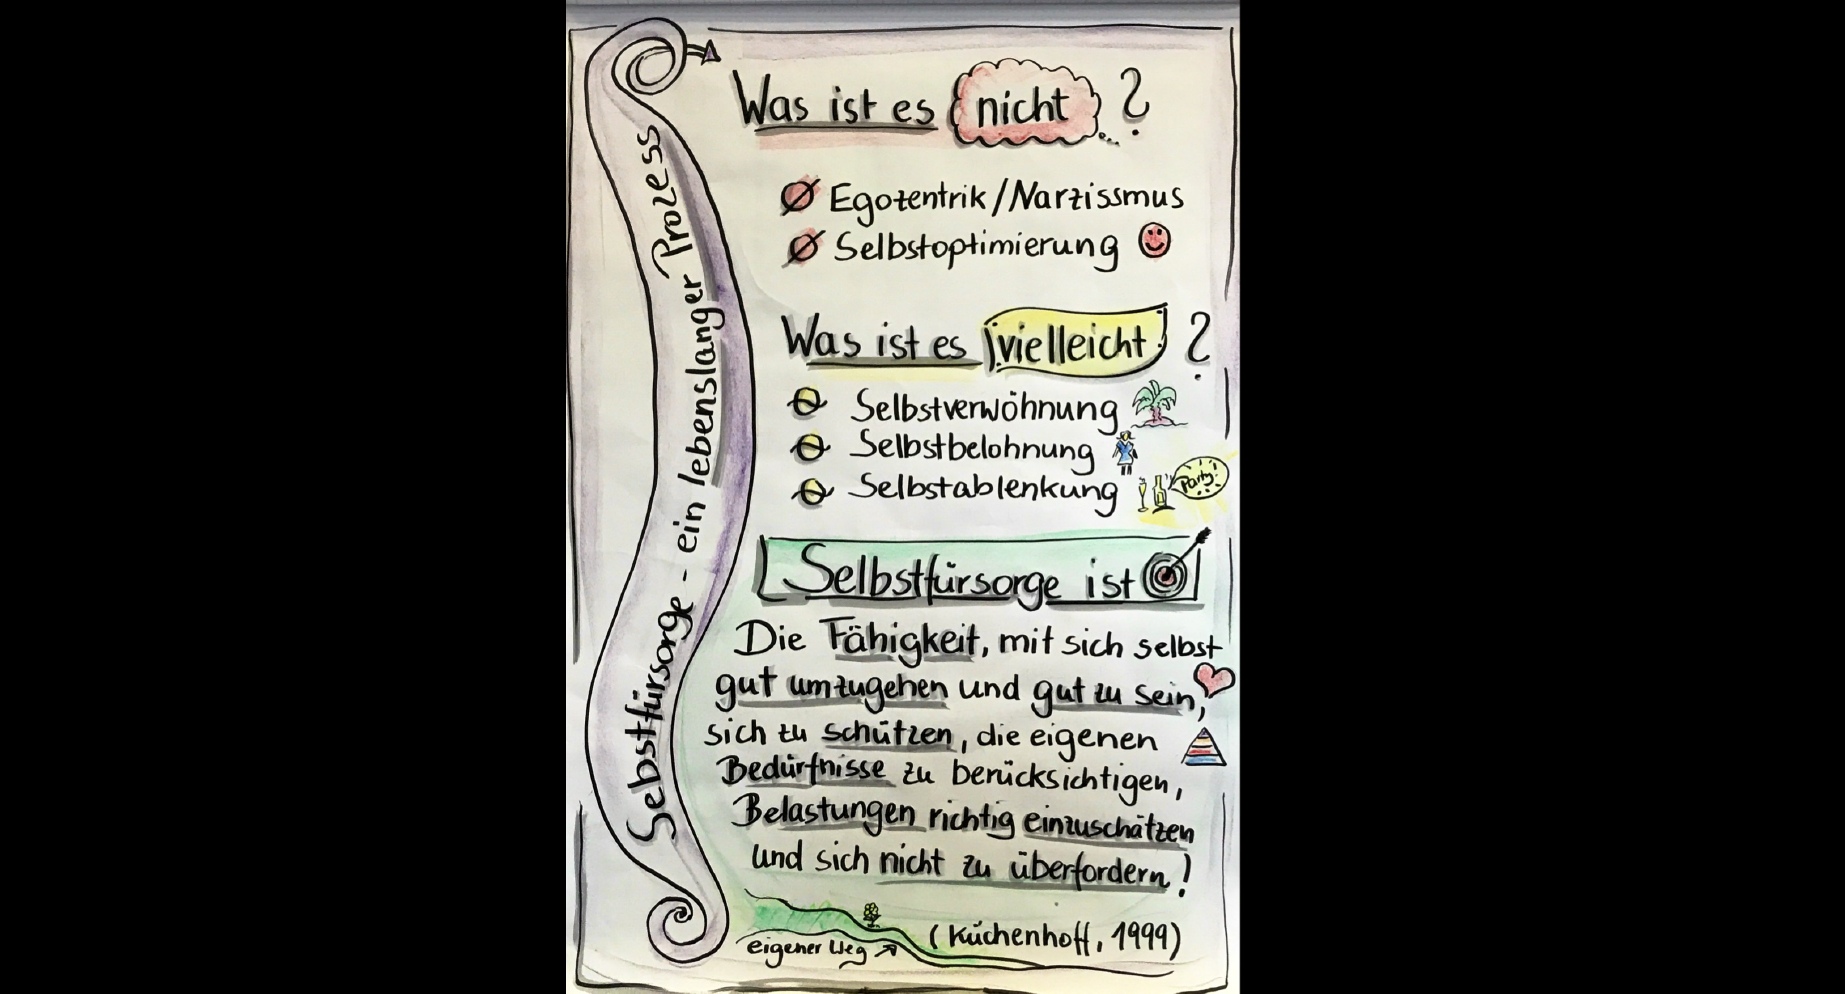 Selbstfürsorge - ein lebenslanger Prozess
Was ist es nicht ?
Egozentrik/Narzissmus
Selbstoptimierung
Was ist es vielleicht ?
Selbstverwöhnung
Selbstbelohnung
Selbstablenkung
Party!
Selbstfürsorge ist
Die Fähigkeit, mit sich selbst
gut umzugehen und gut zu sein,
sich zu schützen, die eigenen
Bedürfnisse zu berücksichtigen,
Belastungen richtig einzuschätzen
und sich nicht zu überfordern!
eigener Weg
(Küchenhoff, 1999)